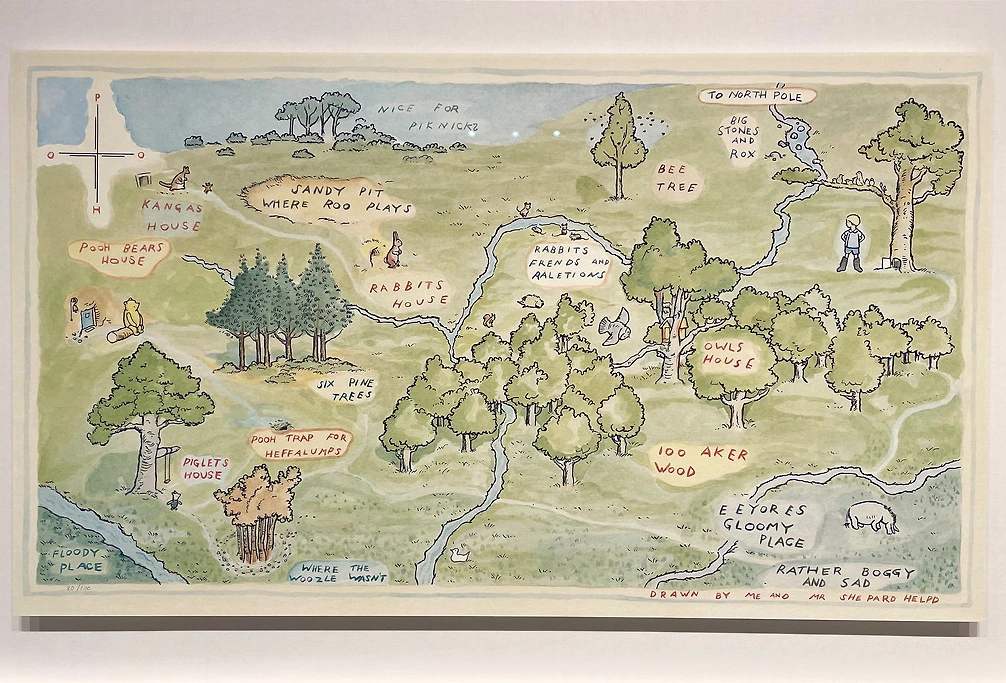 P
O
O
H
NICE FOR
PIKNICKS
TO NORTH POLE
BIG
STONES
AND
ROX
BEE
TREE
SANDY PIT
WHERE ROO PLAYS
KANGAS
HOUSE
POOH BEARS
HOUSE
RABBITS
FRENDS AND
RALETIONS
RABBITS
HOUSE
OWLS
HOUSE
SIX PINE
TREES
POOH TRAP FOR
HEFFALUMPS
PIGLETS
HOUSE
100 AKER
WOOD
EEYORES
GLOOMY
PLACE
FLOODY
PLACE
WHERE THE
WOOZLE WASNT
RATHER BOGGY
AND SAD
DRAWN BY ME AND MR SHEPARD HELPD